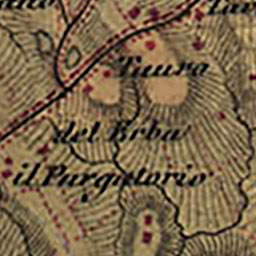 Taura
del Erba
il Purgatorio